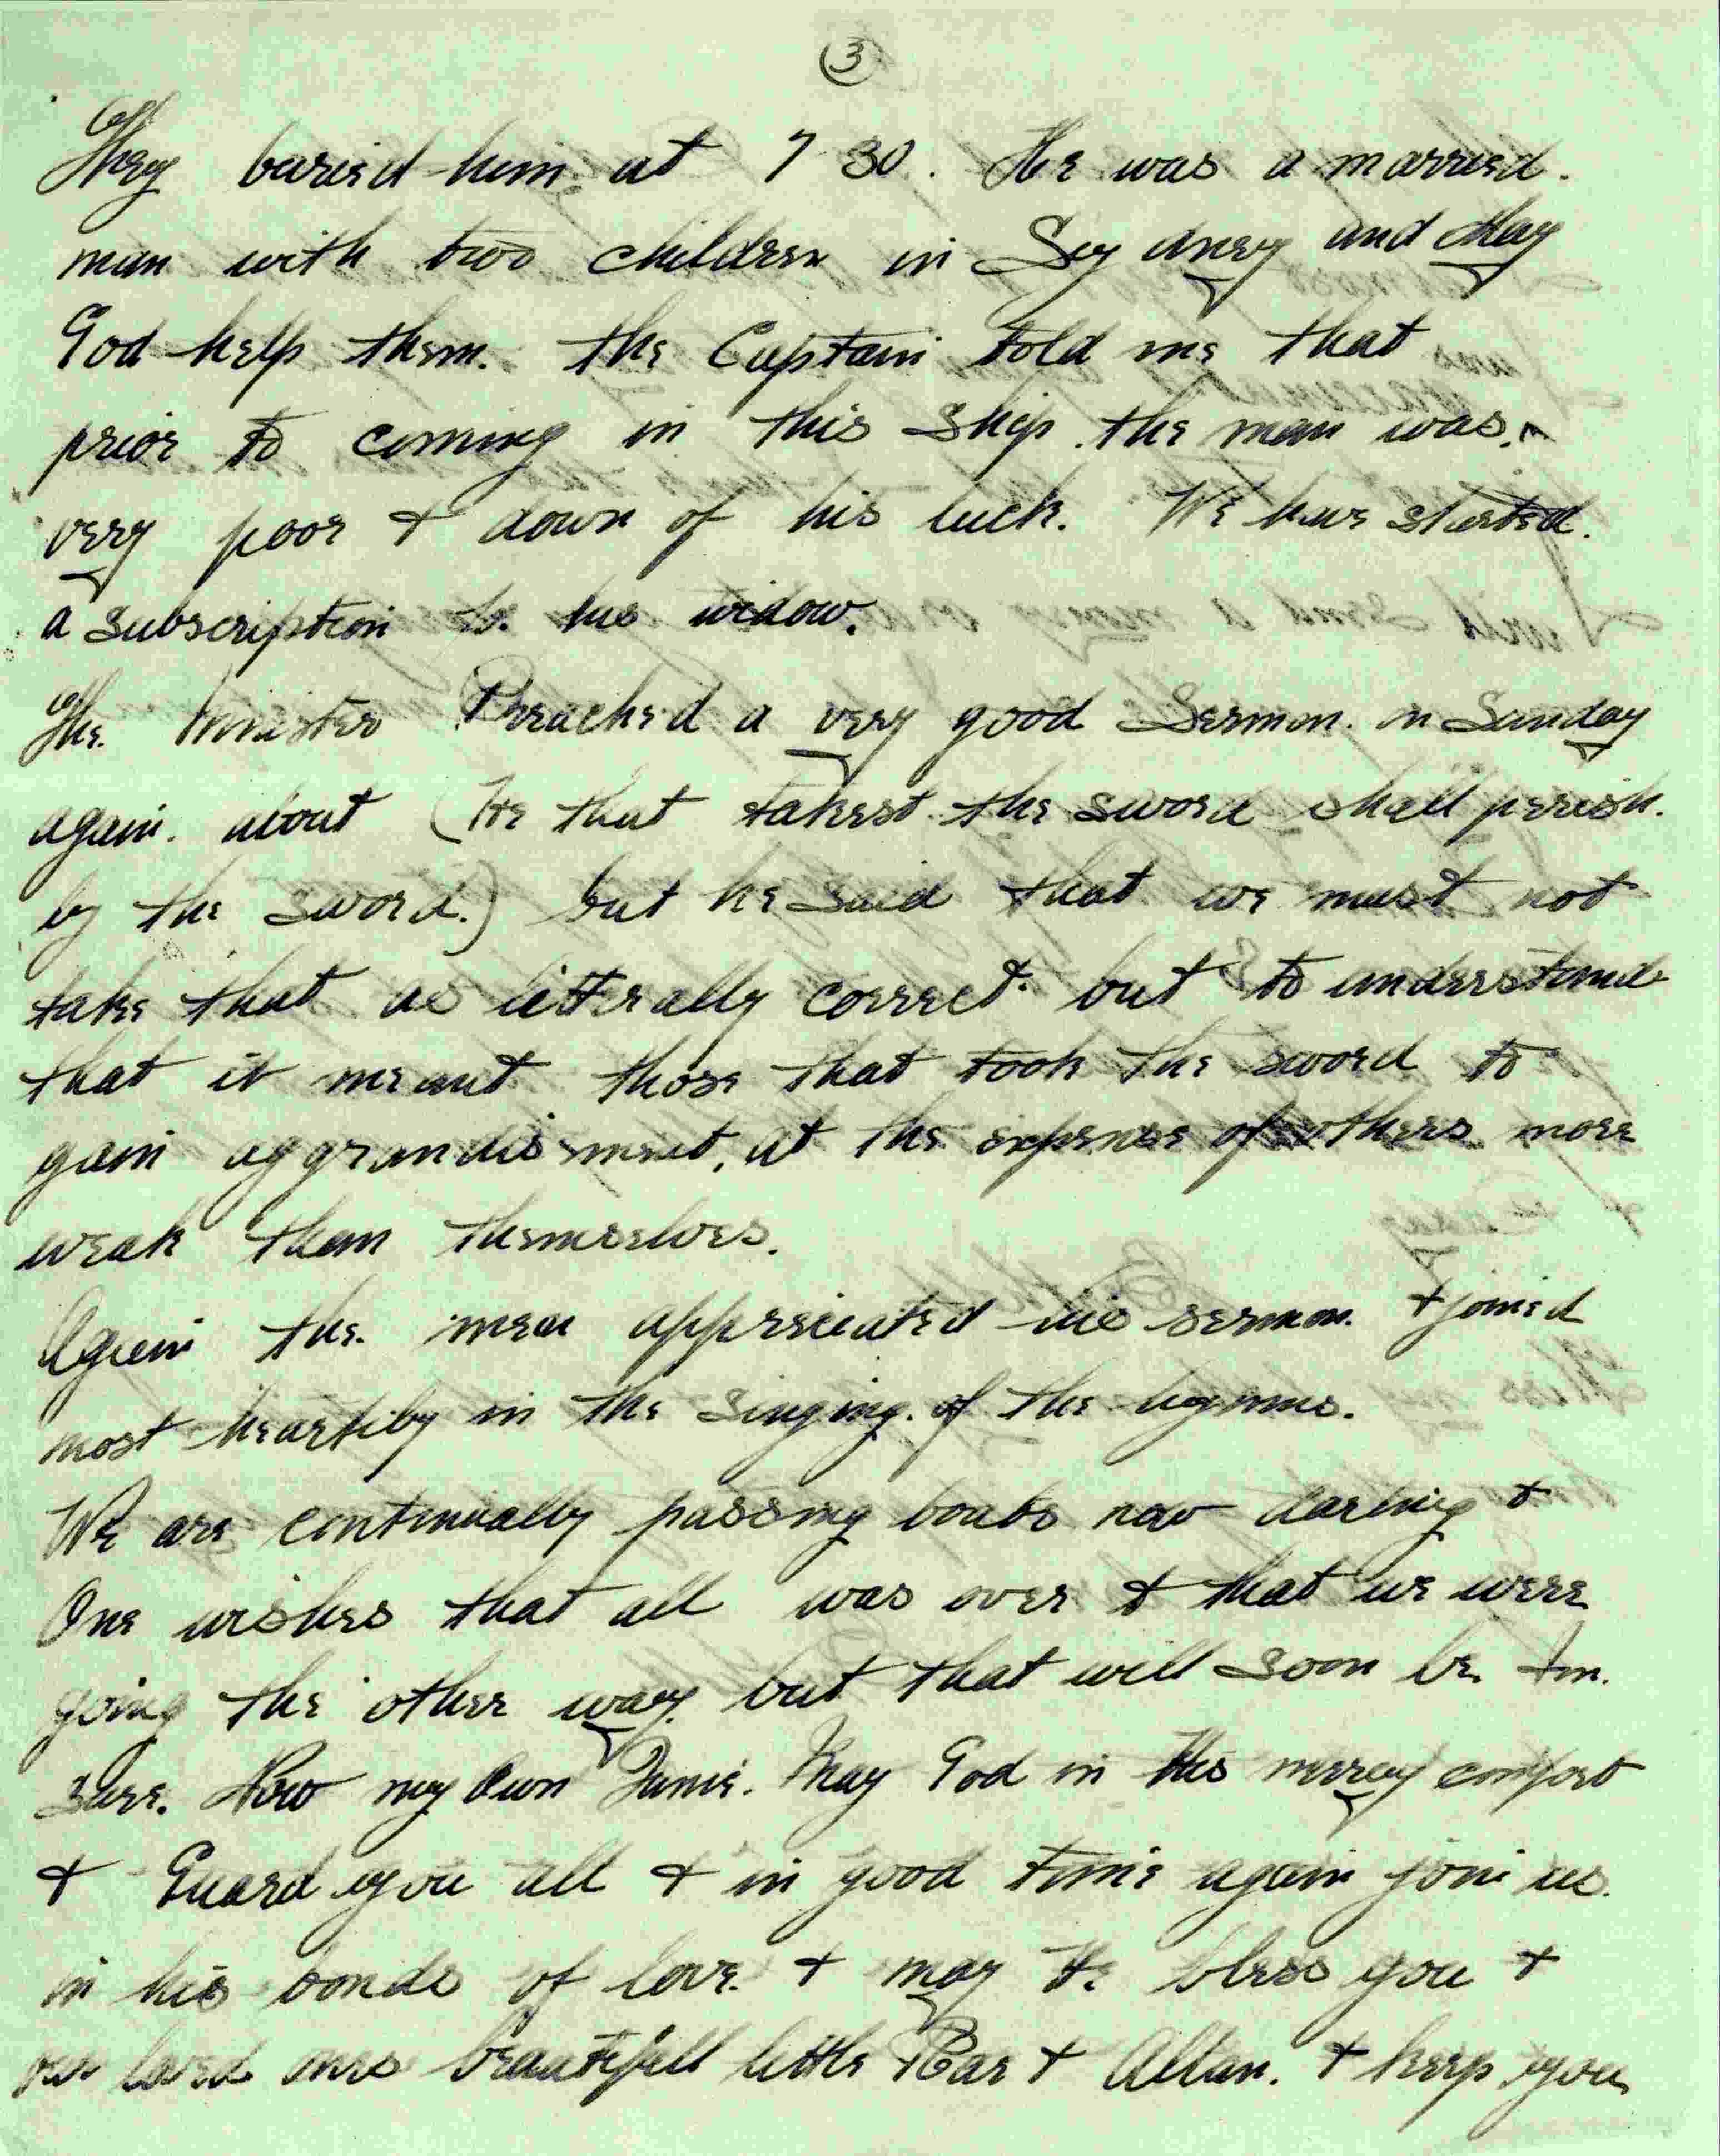 3
They buried him at 7 30. He was a married.
man with two children in Sydney and May
God help them. the Captain told me that
prior to coming in this ship the man was.
very poor & down of his luck. We have started.
a subscription to his widow.
The Minister Preached a very good Sermon. on Sunday
again. about (He that takest the sword shall perish.
by the sword.) but he said that we must not
take that as litterally correct. but to understand
that it meant those that took the sword to
gain aggrandisment, at the expense of others more
weak than themselves.
Again the men appreciated his sermon. & joined
most heartily in the singing. of the hymns.
We are continually passing boats now darling &
One wishes that all was over & that we were
going the other way. but that will soon be Im.
sure. Now my Own Janie. May God in His mercy comfort
& Guard you all & in good time again join us.
in his bonds of love. & may He bless you &
our loved ones beautifull little & Allan. & keep you